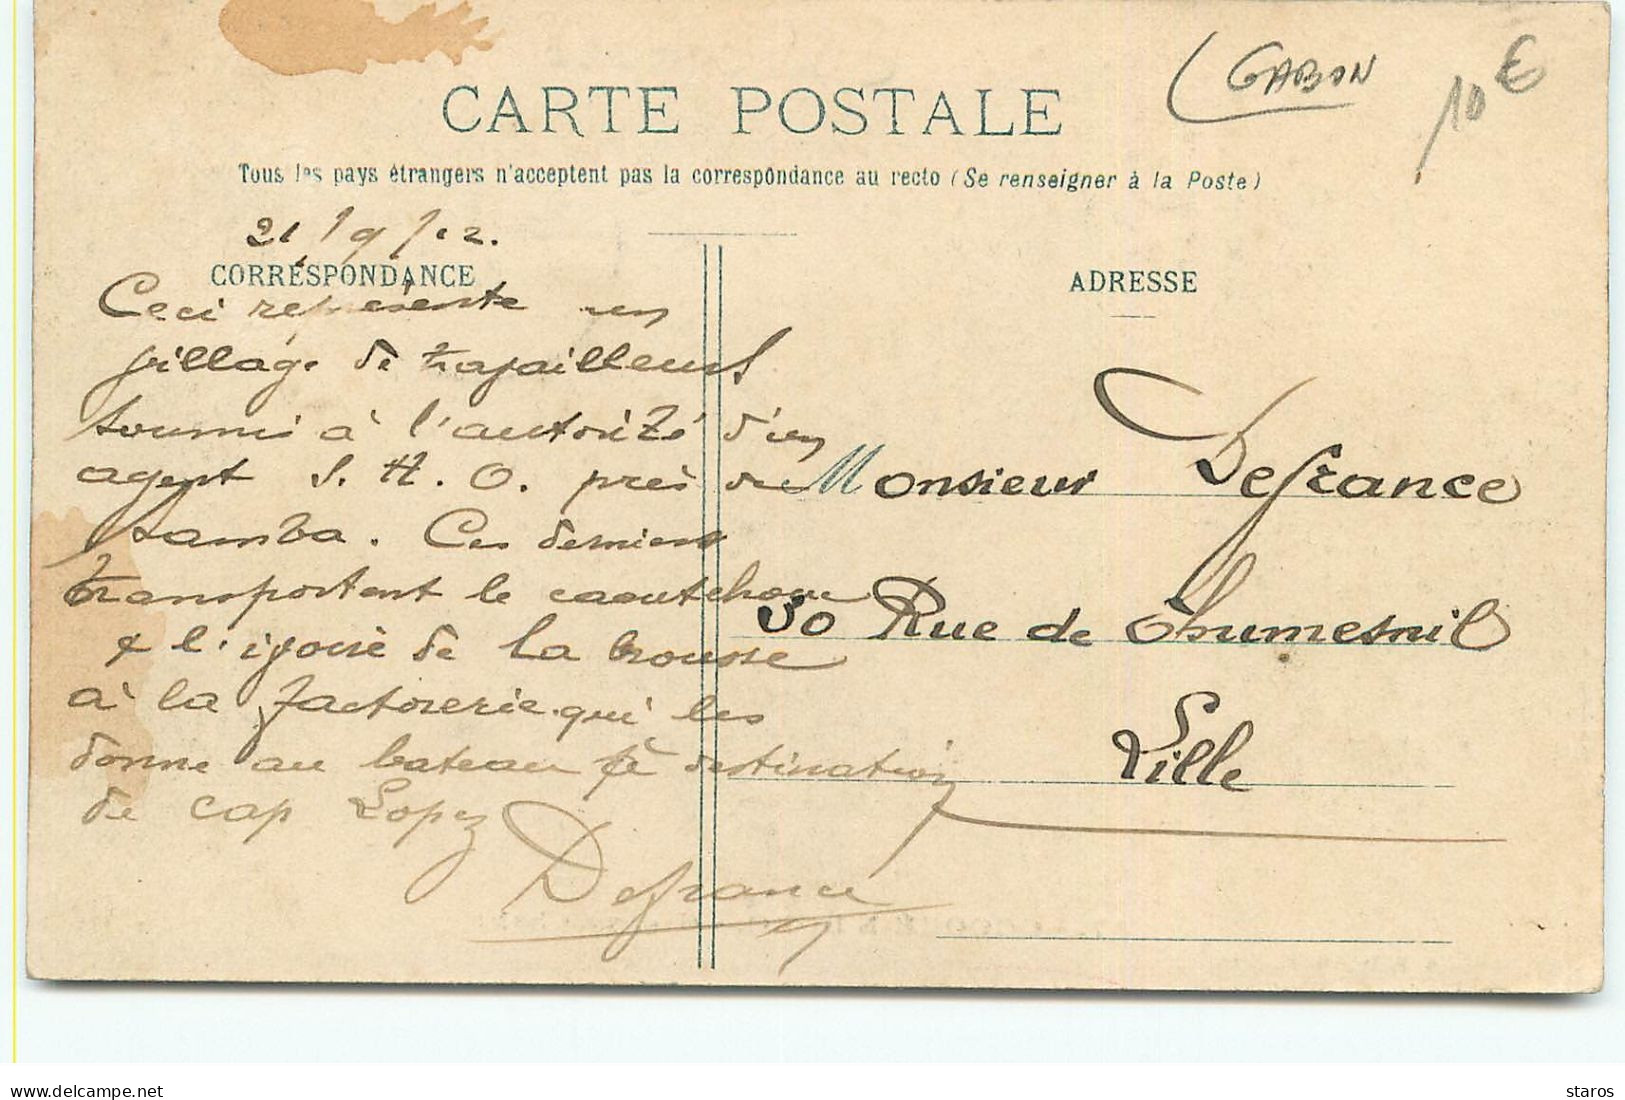 GABON
10 €
CARTE POSTALE
Tous les pays étrangers n'acceptent pas la correspondance au recto (Se renseigner à la Poste)
21/9/12.
CORRESPONDANCE
ADRESSE
Ceci représente un
village de travailleurs
soumis à l'autorité d'un
agent S. H. O. près de
Samba. Ces derniers
transportent le caoutchouc
& l'ivoire de la brousse
à la factorerie qui les
donne au bateau à destination
de cap Lopez
Defrance
Monsieur Defrance
50 Rue de Thumesnil
Lille
www.delcampe.net
staros